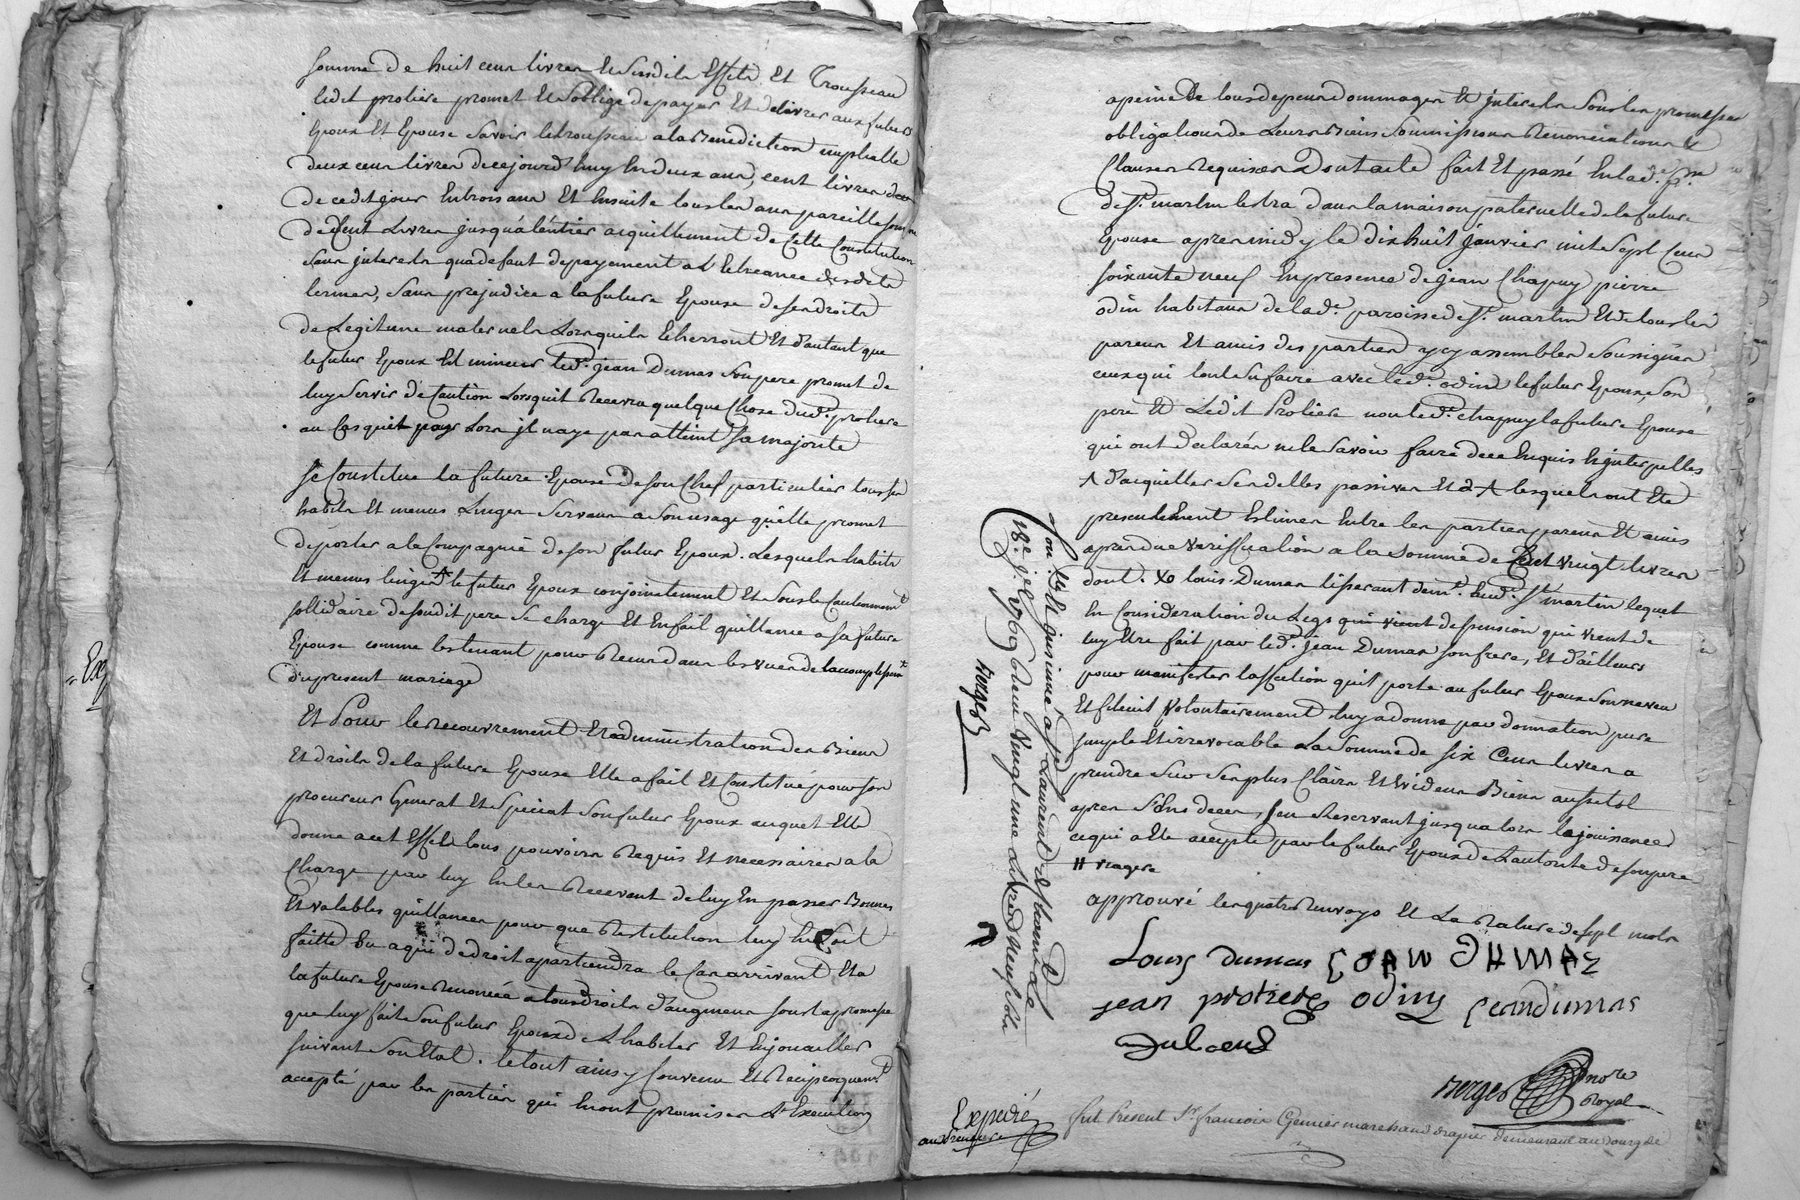 somme de huit cens livres et susdits Effets Et Trousseau
ledit proliere promet Et soblige de payer Et delivrer aux futurs
Epoux Et Epouse savoir le trousseau a la Benediction nuptialle
deux cens livres de cejourd'huy En deux ans, cent livres
de cedit jour En trois ans Et Ensuite tous les ans pareille somme
de Cent Livres jusqu'a l'entier aquittement de Cette Constitution
sans interets qu'a defaut de payement a l'Echeance desdits
termes, sans prejudice a la future Epouse de ses droits
de Legitime maternels Lorsquils Echerront Et d'autant que
le futur Epoux Est mineur led. jean Dumas son pere promet de
luy servir de Caution Lorsquil Recevra quelque Chose dud. proliere
au Cas quil Lors il naye pas atteint sa majorité
se Constitue la future Epouse de son Chef particulier tous ses
habits Et menus Linges servans a son usage qu'elle promet
de porter a la Compagnie de son futur Epoux. Lesquels habits
Et menus linges le futur Epoux conjointement Et sous le Cautionnemt
sollidaire de sondit pere se charge Et En fait quittance a sa future
Epouse comme les tenant pour Recus dans les vues de laccomplissemt
du present mariage
Et Pour le recouvrement Et administration des Biens
Et droits de la future Epouse Elle a fait Et Constitué pour son
procureur General Et special son futur Epoux auquel Elle
donne a cet Effet tous pouvoirs Requis Et necessaires a la
Charge par luy En les Recevant de luy En passer Bonnes
Et valables quittances pour que Restitution luy En soit
faitte ou a qui de droit apartiendra le Cas arrivant Et a
la future Epouse Renoncée a tous Droits d'augment sous la promesse
que luy fait son futur Epoux de L'habiller Et Enjoualler
suivant son Etat. le tout ainsy Convenu Et Reciproquemt
accepté par les parties qui En ont promis Execution
a peine de tous depens dommages Et interets sous les promesses
obligations de Leurs Biens soumissions Renonciations &
Clauses Requises Dont acte fait Et passé En lad. psse
de St. martin lestra dans la maison paternelle de la future
Epouse apres midy le dix huit janvier mil sept Cens
soixante neuf En presence de jean Chapuy pierre
odin habitans de lad. paroisse de St. martin Et de tous les
parens Et amis des parties y cy assembles soussignés
ceux qui lont su faire avec led. odin le futur Epoux, son
pere Et Ledit Proliere non led. chapuy la future Epouse
qui ont declarés ne le savoir faire de ce Enquis Et interpelles
lesquels ont Eté
presentement Estimes Entre les parties parens Et amis
apres due veriffication a la somme de Cent vingt livres
dont. Xo louis Dumas tisserant demt. aud. St. martin lequel
En Consideration du Legs de pension qui vient de
luy Etre fait par led. jean Dumas son frere, Et d'ailleurs
pour manifester laffection quil porte au futur Epoux son neveu
Et filleul volontairement luy a donné par donnation pure
simple Et irrevocable La somme de six Cens livres a
prendre sur ses plus Clairs Et Evidens Biens aussitot
apres son deces, sen Reservant jusqu'alors la jouissance
ce qui a Eté accepté par le futur Epoux de L'autorité de son pere
# viagere
approuvé les quatre Renvoys Et La Rature de sept mots
Louis dumas jean DUMAS
jean proliere odin jean dumas
Dulieu
Verges nore
Royal
Con.lé Et insinué a St. Laurent
18e. jer. 1769 Recu vingt une Livres neuf sols
Verges
Expedié
fut Present Sr. francois Grenier marchand drapier demeurant au bourg de
Exp